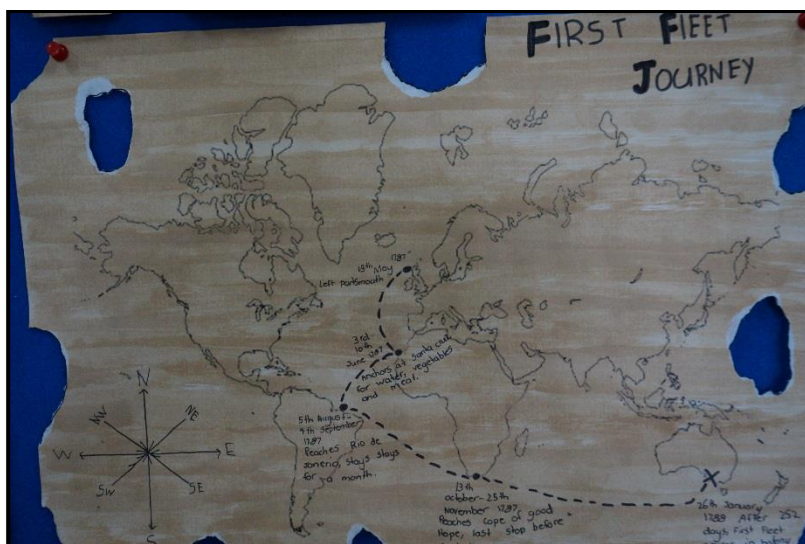 FIRST FLEET
JOURNEY
1787
May
Left Portsmouth
3rd
10th
June 1787
Anchors at Santa cruz
for water, vegetables
and meat.
N
NW
NE
W
E
SW
SE
S
5th August-
4th September
1787
Reaches Rio de
stays stays
for a month.
13th
october-
November 1787
Reaches cape of good
Hope, last stop before
26th January
After 252
days, First Fleet